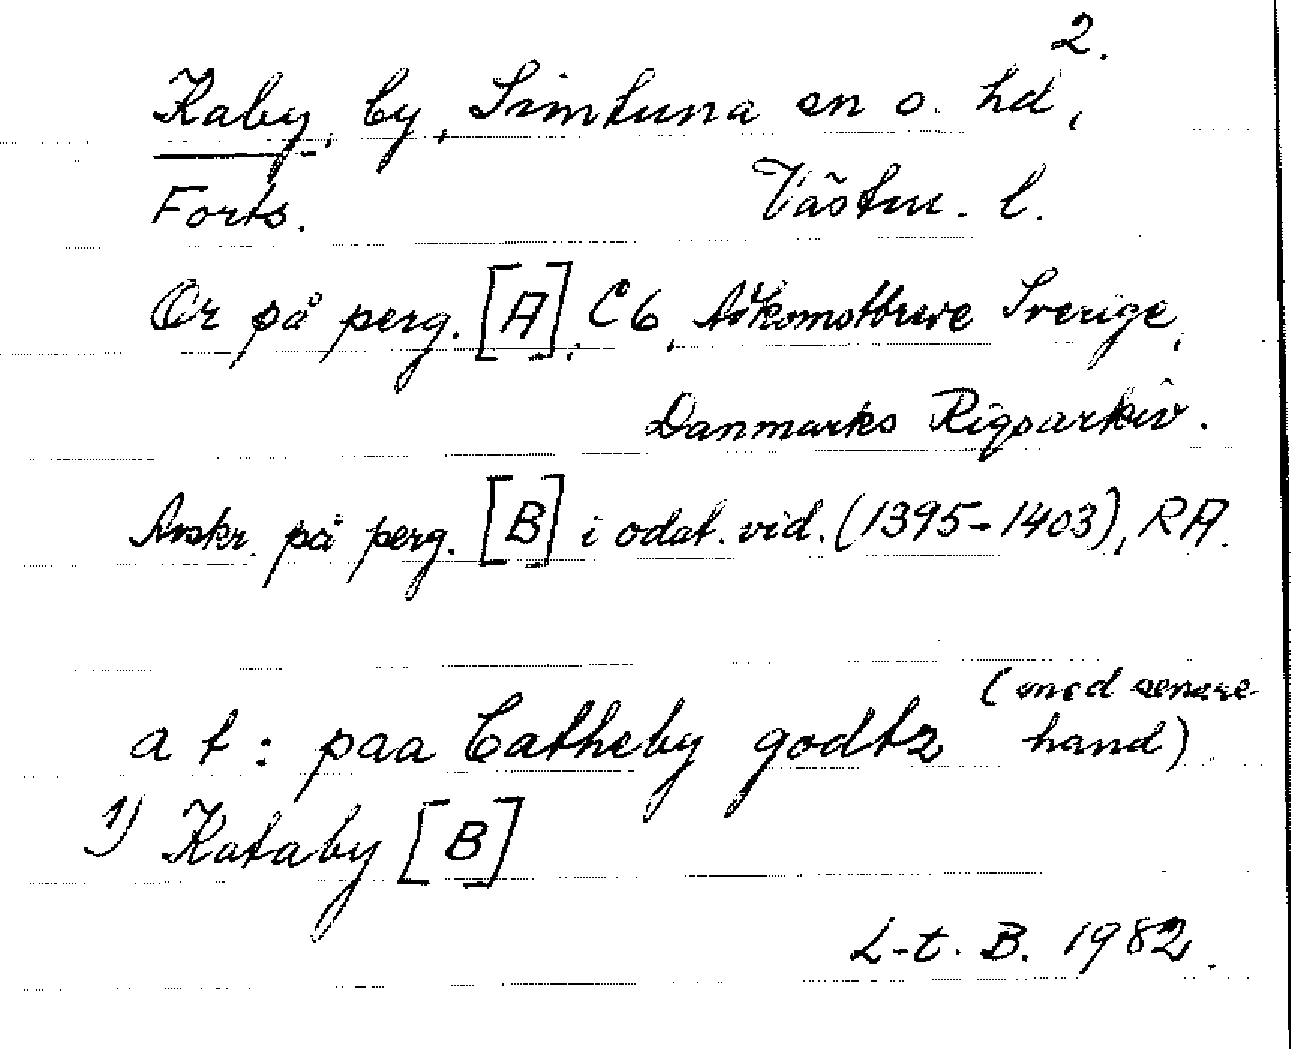 2.
Kaby, by, Simtuna sn o. hd,
Forts. Västm. l.
Or på perg. [A], C6, Adkomstbreve Sverige,
Danmarks Rigsarkiv.
Avskr. på perg. [B] i odat. vid. (1395-1403), RA.
a t: paa Catheby godtz (med senare
hand)
1) Kataby [B]
L-t. B. 1982.